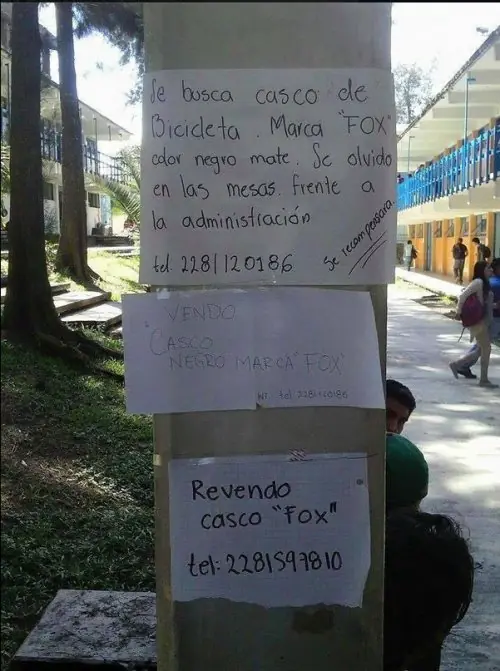 Se busca casco de
Bicicleta. Marca "FOX"
color negro mate. Se olvido
en las mesas. frente a
la administración
se recompensara.
tel. 2281120186
VENDO
"CASCO
NEGRO MARCA "FOX"
tel 2281120186
Revendo
casco "Fox"
tel: 2281597810